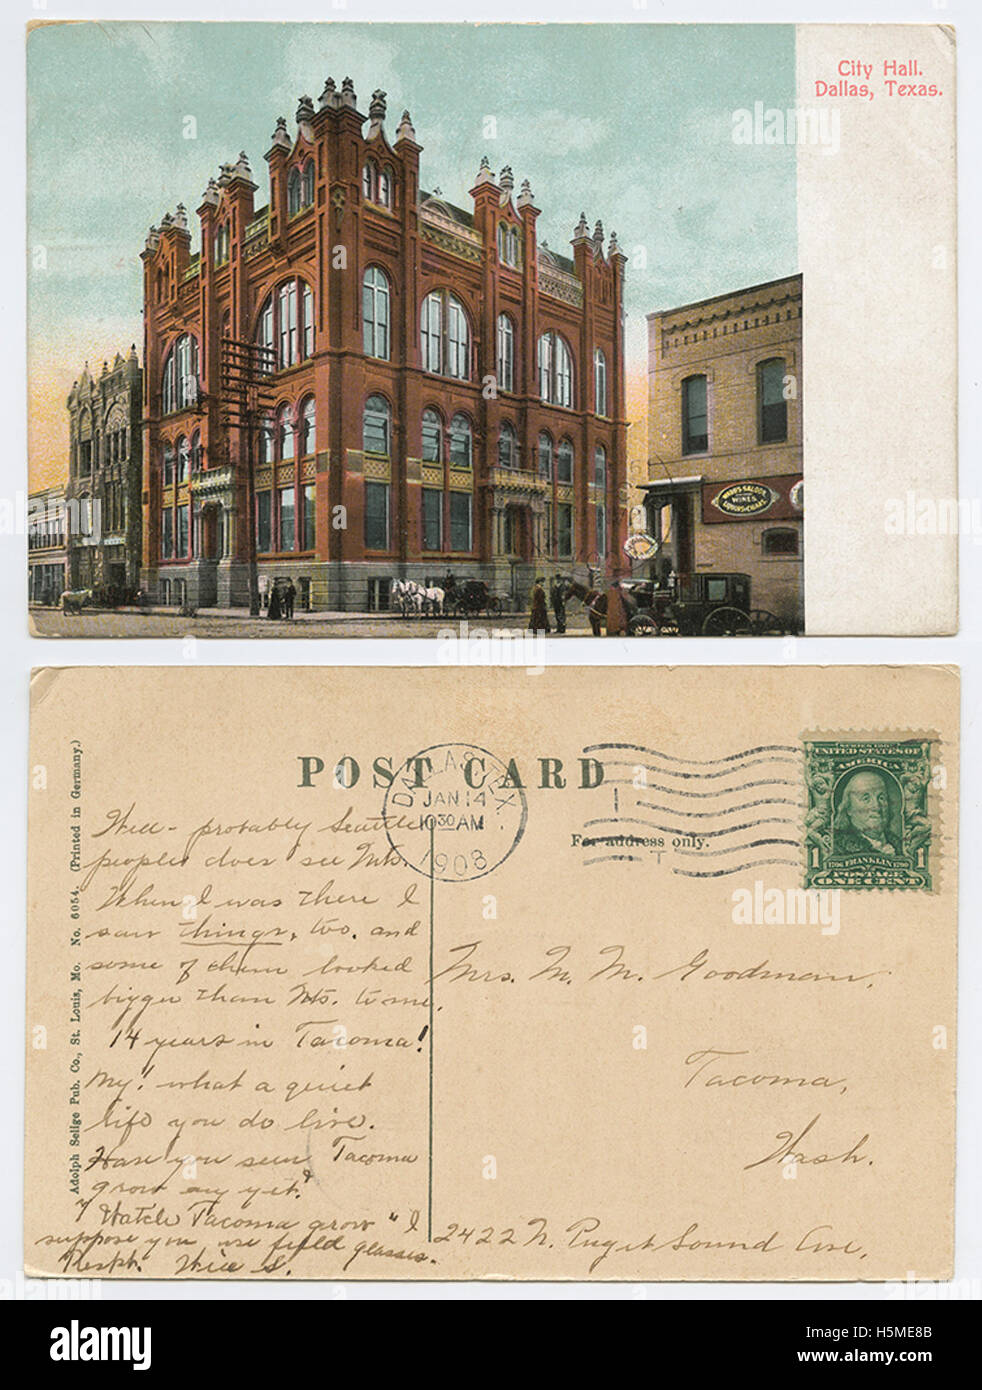 City Hall.
Dallas, Texas.
WARD'S SALOON
WINES
LIQUORS & CIGARS
POST CARD
DALLAS, TEX.
JAN 14
10 30 AM
1908
1
For address only.
SERIES 1902
UNITED STATES OF
AMERICA
1706 FRANKLIN 1790
1 POSTAGE 1
ONE CENT
Adolph Selige Pub. Co., St. Louis, Mo. No. 6054. (Printed in Germany.)
Well - probably Seattle
peoples does see Mts.
When I was there I
saw things, too, and
some of them looked
bigger than Mts. to me.
14 years in Tacoma!
My! what a quiet
life you do live.
Have you seen Tacoma
grow any yet?
"Watch Tacoma grow" I
suppose you use field glasses.
Respt. Will S.
Mrs. M. M. Goodman,
Tacoma,
Wash.
2422 N. Puget Sound Ave,
alamy
alamy
H5ME8B
www.alamy.com